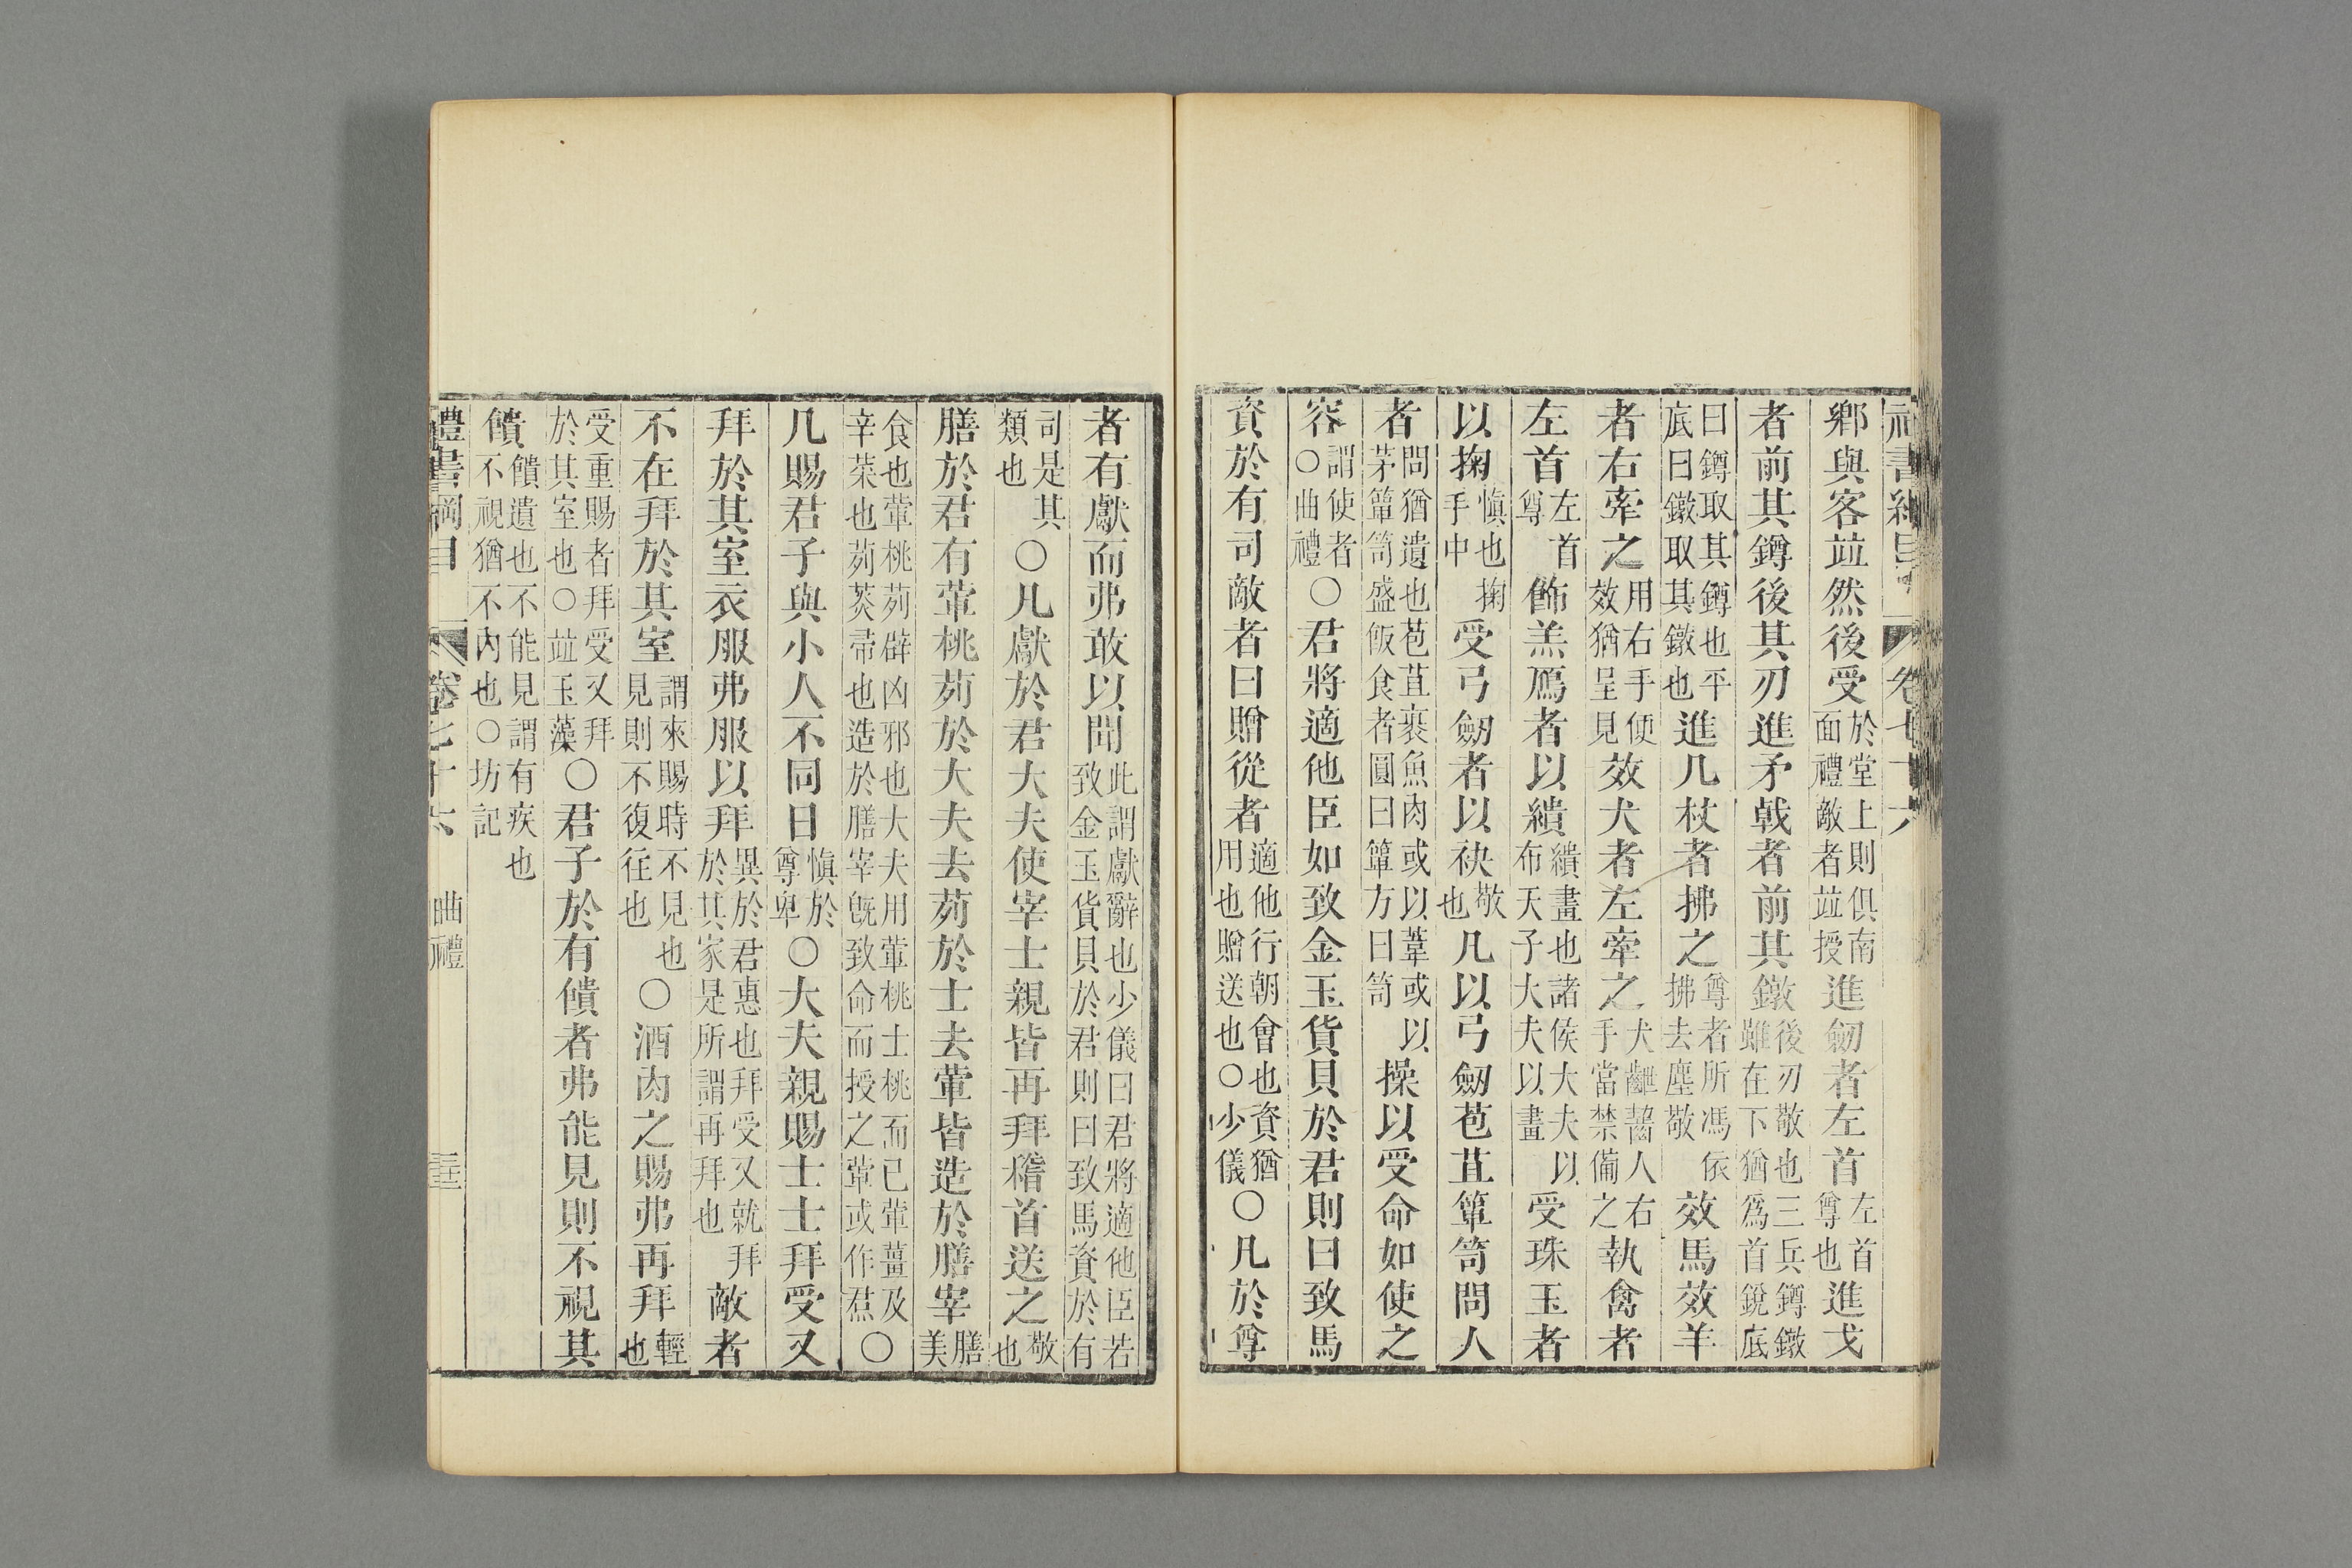 鄉與客竝然後受於堂上則俱南面禮敵者竝授進劒者左首左首尊也進戈
者前其鐏後其刃進矛戟者前其鐓後刃敬也三兵鐏鐓雖在下猶爲首銳底
曰鐏取其鐏也平底曰鐓取其鐓也進几杖者拂之尊者所馮依拂去塵敬效馬效羊
者右牽之用右手便效猶呈見效犬者左牽之犬齜齧人右手當禁備之執禽者
左首左首尊飾羔鴈者以繢繢畫也諸侯大夫以布天子大夫以畫受珠玉者
以掬慎也掬手中受弓劒者以袂敬也凡以弓劒苞苴簞笥問人
者問猶遺也苞苴裹魚肉或以葦或以茅簞笥盛飯食者圓曰簞方曰笥操以受命如使之
容謂使者○曲禮○君將適他臣如致金玉貨貝於君則曰致馬
資於有司敵者曰贈從者適他行朝會也資猶用也贈送也○少儀○凡於尊
者有獻而弗敢以聞此謂獻辭也少儀曰君將適他臣若致金玉貨貝於君則曰致馬資於有
司是其類也○凡獻於君大夫使宰士親皆再拜稽首送之敬也
膳於君有葷桃茢於大夫去茢於士去葷皆造於膳宰膳美
食也葷桃茢辟凶邪也大夫用葷桃士桃而已葷薑及辛菜也茢菼帚也造於膳宰既致命而授之葷或作焄○
凡賜君子與小人不同日慎於尊卑○大夫親賜士士拜受又
拜於其室衣服弗服以拜異於君惠也拜受又就拜於其家是所謂再拜也敵者
不在拜於其室謂來賜時不見也見則不復往也○酒肉之賜弗再拜輕也
受重賜者拜受又拜於其室也○竝玉藻○君子於有饋者弗能見則不視其
饋饋遺也不能見謂有疾也不視猶不內也○坊記
禮書綱目 卷七十六 曲禮 三